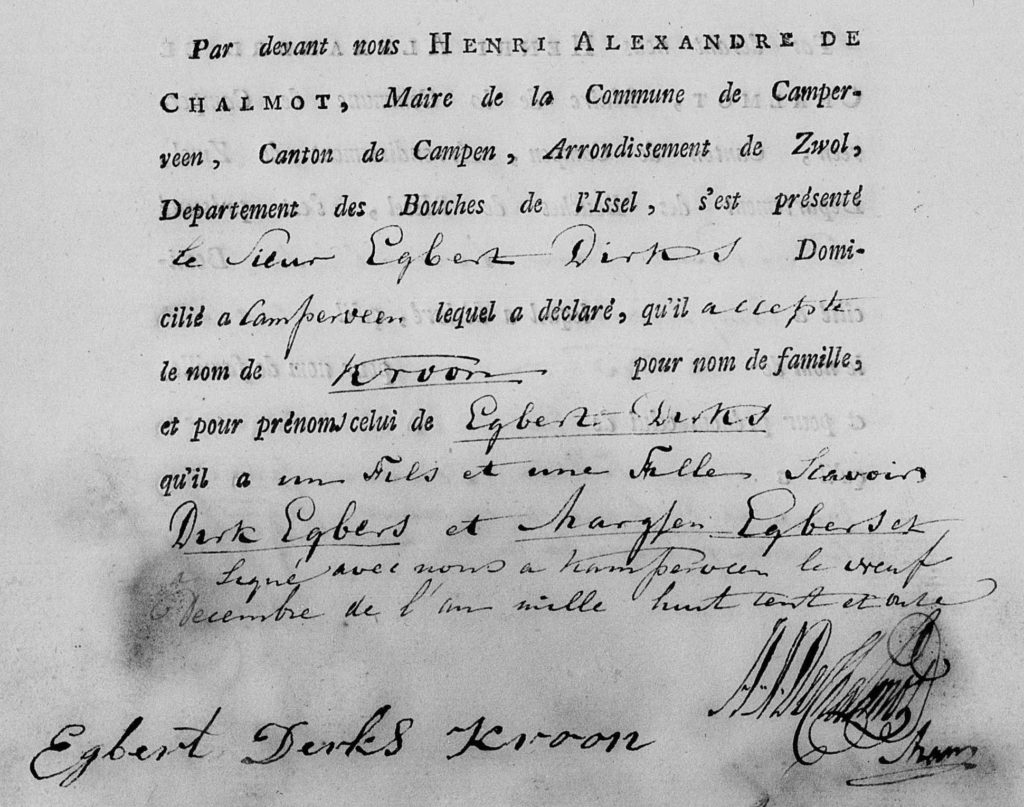 Par devant nous HENRI ALEXANDRE DE
CHALMOT, Maire de la Commune de Camper-
veen, Canton de Campen, Arrondissement de Zwol,
Departement des Bouches de l'Issel, s'est présenté
le Sieur Egbert Dirks Domi-
cilié a Camperveen lequel a déclaré, qu'il accepte
le nom de Kroon pour nom de famille,
et pour prénoms celui de Egbert Derks
qu'il a un Fils et une Fille Scavoir
Derk Egbers et Margjen Egbers et
a Signé avec nous a Kamperveen le neuf
Decembre de l'an mille huit cent et onze
H.A. De Chalmot
Egbert Derks Kroon